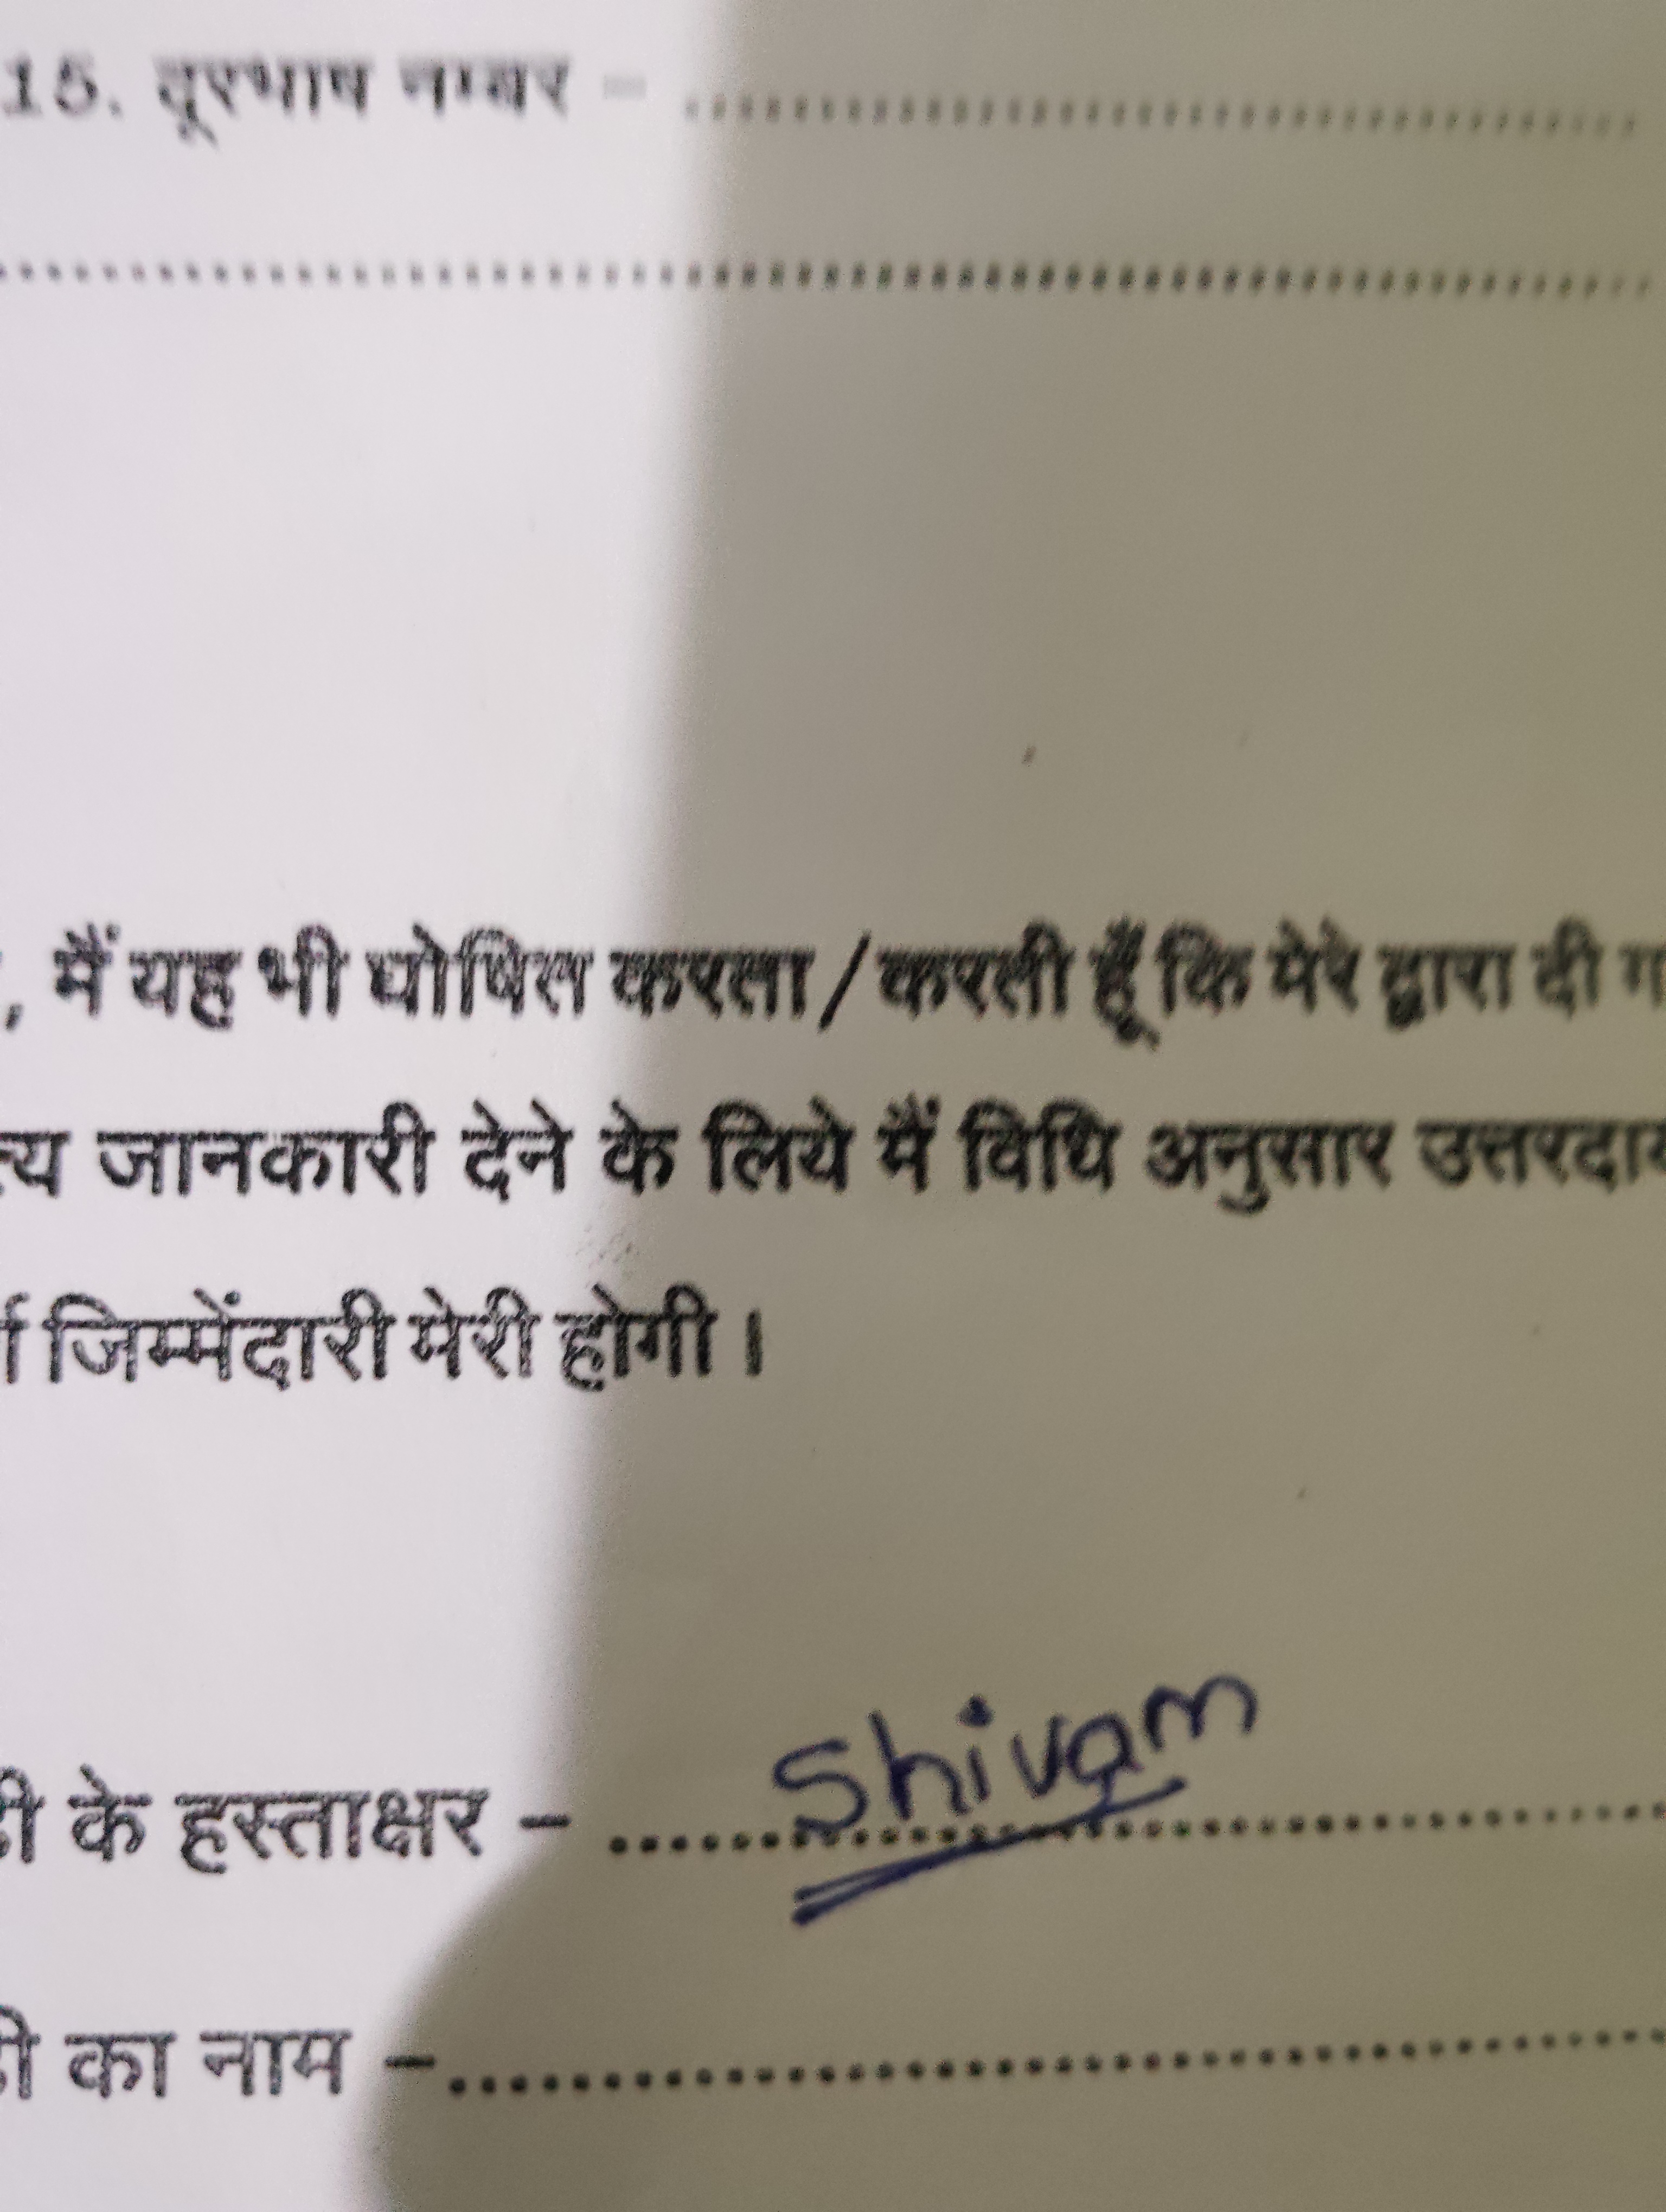 15. दूरभाष नम्बर – ........................................
................................................................
, मैं यह भी घोषित करता/करती हूँ कि मेरे द्वारा दी
जानकारी देने के लिये मैं विधि अनुसार
जिम्मेंदारी मेरी होगी।
Shivam
के हस्ताक्षर – ........................................
का नाम – ........................................